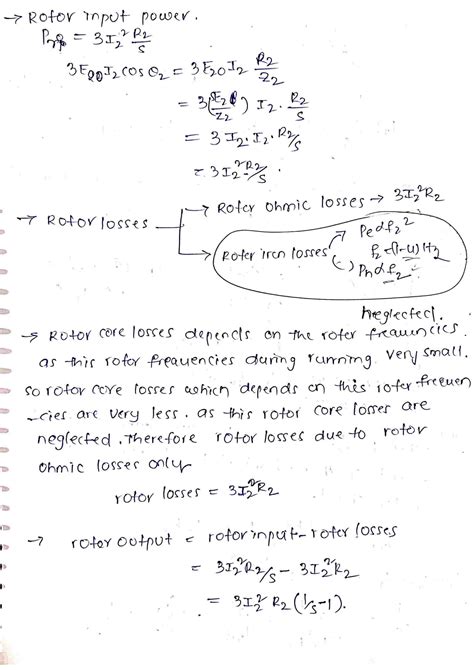 → Rotor input power.
= 3I₂² R₂/S
3E₂₀I₂cos θ₂ = 3E₂₀I₂ R₂/Z₂
= 3(E₂₀/Z₂) I₂ . R₂/S
= 3 I₂ . I₂ . R₂/S
= 3 I₂² R₂/S .
→ Rotor losses
→ Rotor ohmic losses → 3I₂²R₂
→ Rotor iron losses
Pe α f₂²
f₂ = (1-4) Hz
(-) Ph α f₂
neglected.
→ Rotor core losses depends on the rotor frequencies.
as this rotor frequencies during running very small.
so rotor core losses which depends on this rotor frequen
-cies are very less. as this rotor core losses are
neglected. Therefore rotor losses due to rotor
ohmic losses only
rotor losses = 3I₂²R₂
→ rotor output = rotor input - rotor losses
= 3I₂²R₂/S - 3I₂²R₂
= 3I₂² R₂ (1/S - 1).